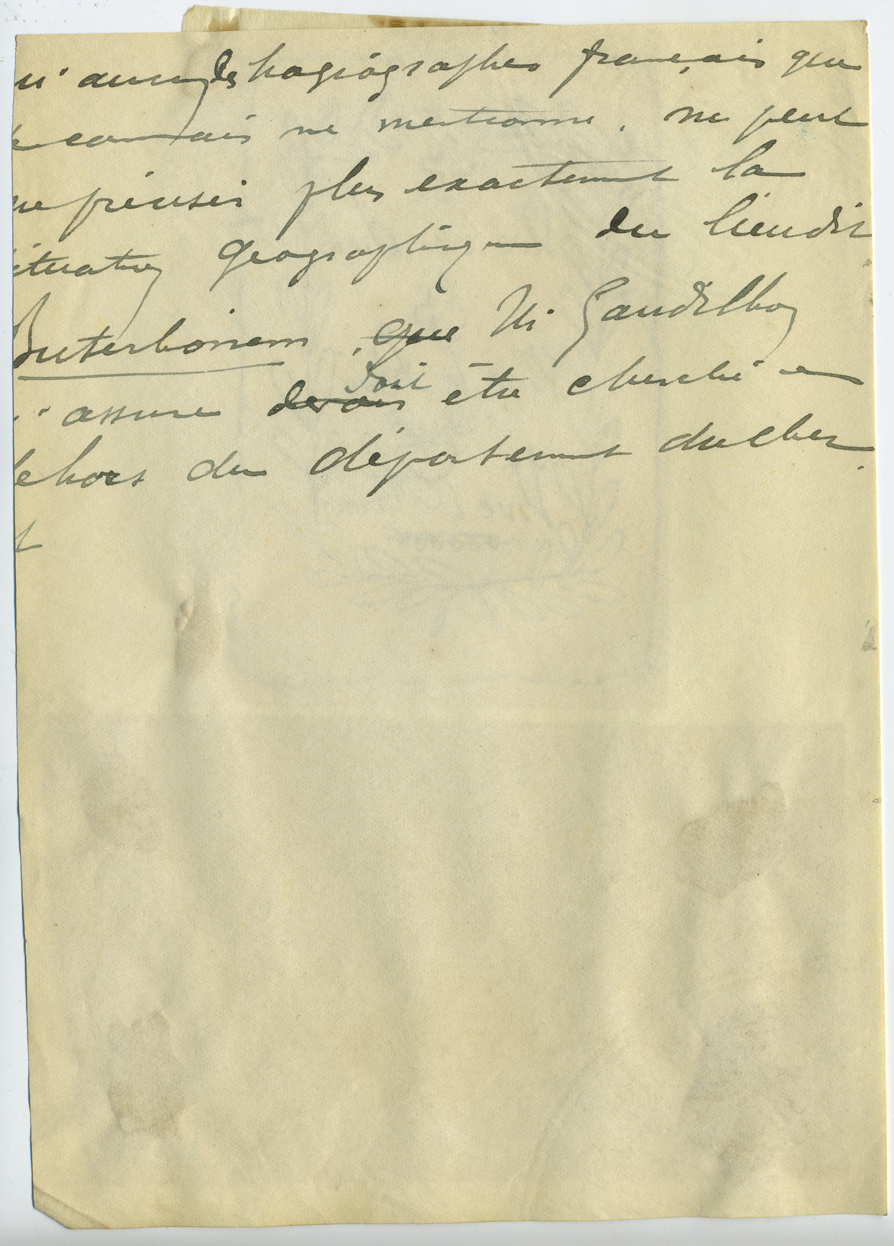 u'aucun des hagiographes français que
connais ne mentionne. ne peut
me préciser plus exactement la
ituation géographique du lieudit
Buterboriem, que M. Gaudilhoy
'assure devoir doit être cherché en
ehors du département du cher.
t